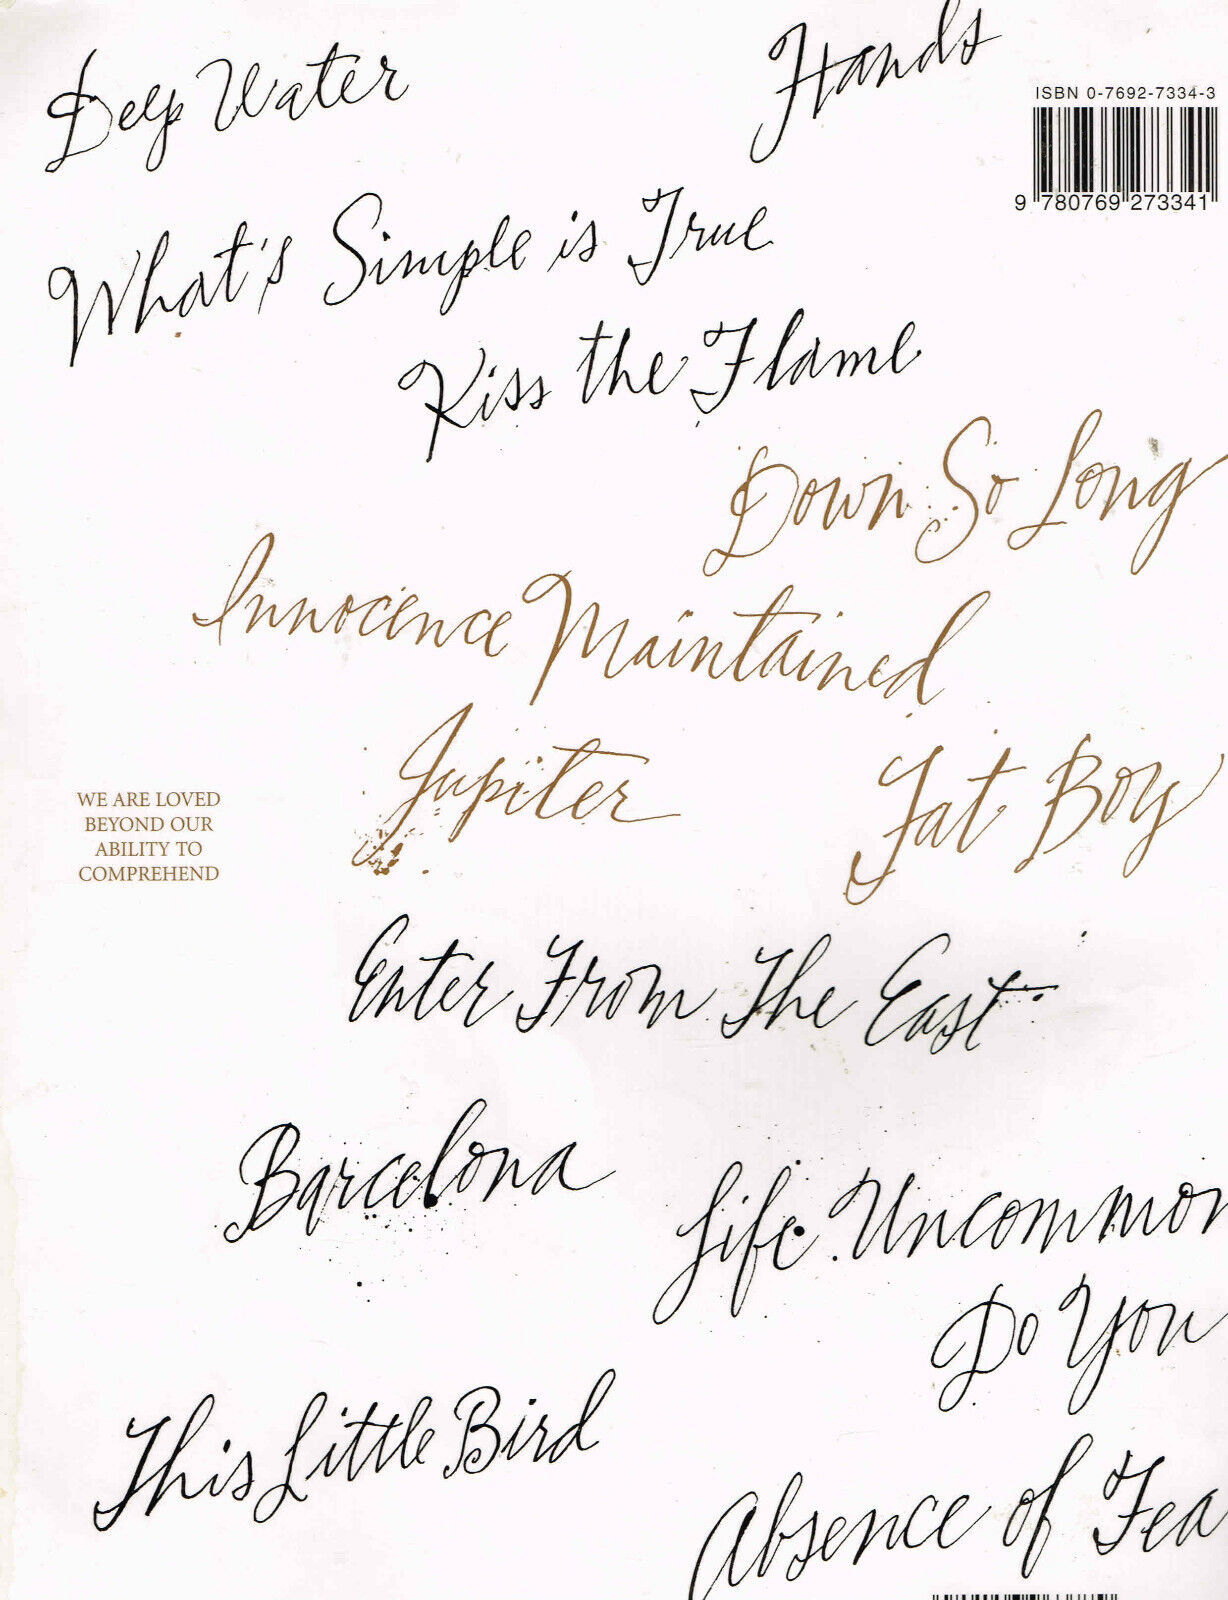 Deep Water
Hands
ISBN 0-7692-7334-3
9 780769 273341
What's Simple is True
Kiss the Flame
Down So Long
Innocence Maintained
Jupiter
Fat Boy
WE ARE LOVED
BEYOND OUR
ABILITY TO
COMPREHEND
Enter From The East
Barcelona
Life Uncommon
Do You
This Little Bird
Absence of Fea